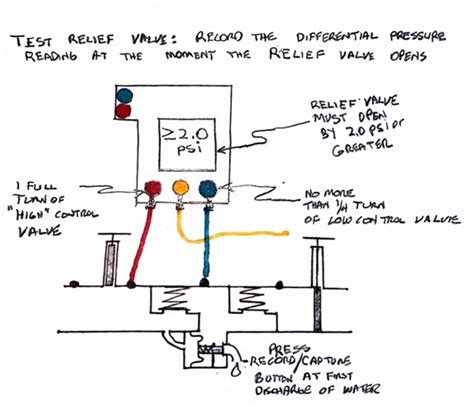 TEST RELIEF VALVE: RECORD THE DIFFERENTIAL PRESSURE
READING AT THE MOMENT THE RELIEF VALVE OPENS
≥2.0
PSI
RELIEF VALVE
MUST OPEN
BY 2.0 PSI OR
GREATER
1 FULL
TURN OF
"HIGH" CONTROL
VALVE
NO MORE
THAN 1/4 TURN
OF LOW CONTROL VALVE
PRESS
RECORD/CAPTURE
BUTTON AT FIRST
DISCHARGE OF WATER